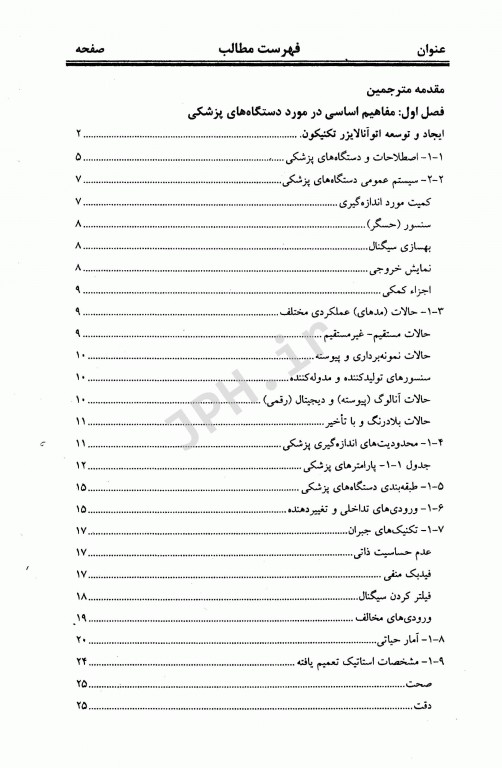 عنوان فهرست مطالب صفحه
مقدمه مترجمین
فصل اول: مفاهیم اساسی در مورد دستگاه‌های پزشکی
ایجاد و توسعه اتوآنالایزر تکنیکون. ۲
۱-۱- اصطلاحات و دستگاه‌های پزشکی ۵
۲-۲- سیستم عمومی دستگاه‌های پزشکی ۷
کمیت مورد اندازه‌گیری ۷
سنسور (حسگر) ۸
بهسازی سیگنال ۸
نمایش خروجی ۸
اجزاء کمکی ۹
۱-۳- حالات (مدهای) عملکردی مختلف ۹
حالات مستقیم- غیرمستقیم ۹
حالات نمونه‌برداری و پیوسته ۱۰
سنسورهای تولیدکننده و مدوله‌کننده ۱۰
حالات آنالوگ (پیوسته) و دیجیتال (رقمی) ۱۰
حالات بلادرنگ و با تأخیر ۱۱
۱-۴- محدودیت‌های اندازه‌گیری پزشکی ۱۱
جدول ۱-۱- پارامترهای پزشکی ۱۲
۱-۵- طبقه‌بندی دستگاه‌های پزشکی ۱۵
۱-۶- ورودی‌های تداخلی و تغییردهنده ۱۵
۱-۷- تکنیک‌های جبران ۱۷
عدم حساسیت ذاتی ۱۷
فیدبک منفی ۱۷
فیلتر کردن سیگنال ۱۸
ورودی‌های مخالف ۱۹
۱-۸- آمار حیاتی ۲۰
۱-۹- مشخصات استاتیک تعمیم یافته ۲۴
صحت ۲۵
دقت ۲۵
JPH.ir